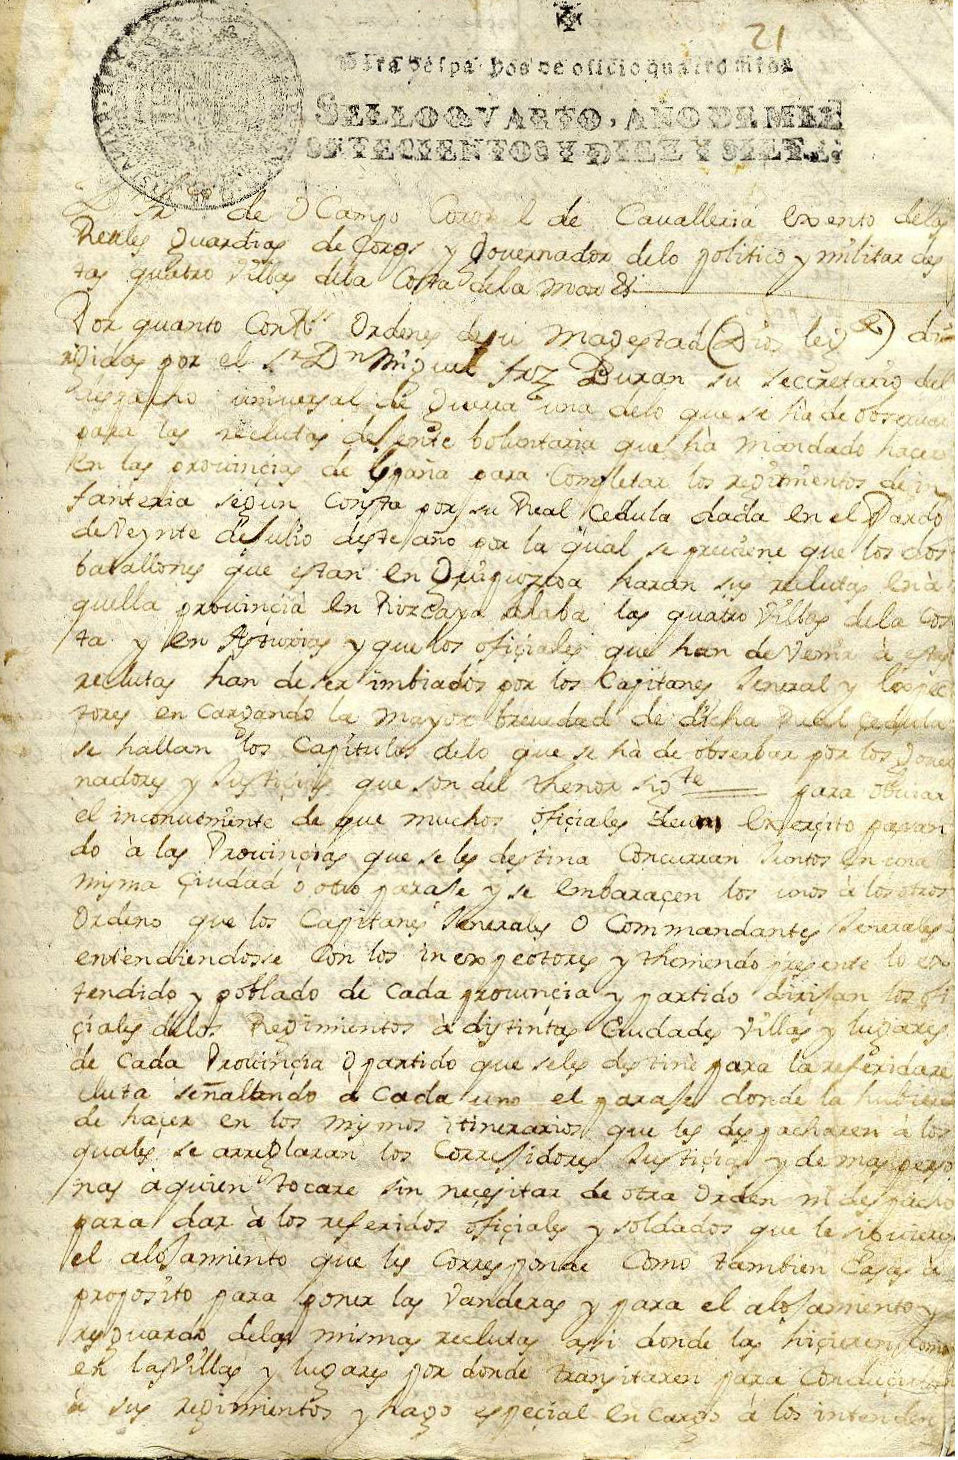 21
Para despachos de oficio quatro mrs.
SELLO QVARTO, AÑO DE MIL
SETECIENTOS Y DIEZ Y SIETE.
de OCampo Coronel de Cavalleria exento delas
Reales Guardias de Corps y Governador delo politico y militar des
tas quatro Villas dela Costa dela mar &
Por quanto Con Ordenes de su Magestad (Dios le) di
rijidas por el Sr Dn Miguel frz Duran su secretario del
despacho universal de Guerra una delo que se ha de observar
para las reclutas de Jente boluntaria que hà mandado hacer
En las provinçias de España para Completar los regimientos de in
fanteria segun Consta por su Real Cedula dada en el Pardo
de Veynte de Julio deste año por la qual se previene que los dos
batallones que estan en Guipuzcoa haran sus reclutas en a
quella provinçia en Vizcaya Alaba las quatro Villas dela Cos
ta y en Asturias y que los ofiçiales que han de Venir à estas
reclutas han de ser imbiados por los Capitanes Jeneral y Inspec
tores en Cargando la mayor brevedad de dicha Real Çedula
se hallan los Capitulos delo que se hà de obserbar por los Gover
nadores y Justiçias que son del thenor sigte para obviar
el inconveniente de que muchos ofiçiales de un Exerçito pasan
do à las Provinçias que se les destina Concurran Juntos en una
misma Çiudad o otro paraJe y se embaraçen los unos à los otros
Ordeno que los Capitanes Jenerales O Commandantes Jenerales
entendiendose Con los inexpectores y theniendo presente lo ex
tendido y poblado de Cada provinçia y partido diriJan los ofi
çiales delos Regimientos à distintas Ciudades Villas y lugares
de Cada Provinçia O partido que seles destine para la referida re
cluta señalando à Cada uno el paraJe donde la hubiere
de haçer en los mismos itinerarios que les despacharen à los
quales se arreglaran los CorreJidores Justiçias y demas perso
nas à quien tocare sin neçesitar de otra Orden ni despacho
para dar à los referidos ofiçiales y soldados que le siguieren
el aloJamiento que les Corresponde Como tambien Casas à
proposito para poner las Vanderas y para el aloJamiento y
resguardo delas mismas reclutas asi donde las hiçieren Como
en las Villas y lugares por donde transitaren para Conduçirlas
à sus regimientos y hago espeçial en Cargo à los intenden